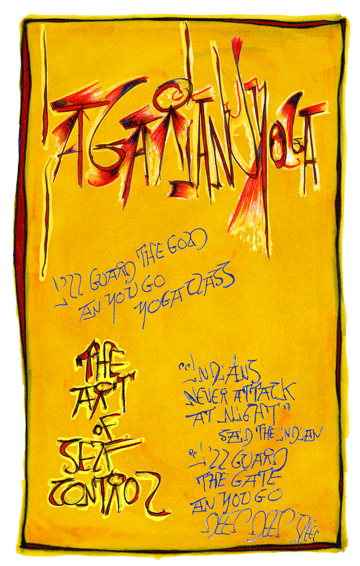 YOGA
I'LL GUARD THE GOLD
AN YOU GO
YOGA CLASS
THE
ART
OF
SELF
CONTROL
"INDIANS
NEVER ATTACK
AT NIGHT"
SAID THE INDIAN
"I'LL GUARD
THE GATE
AN YOU GO
DEEP DEEP DEEP